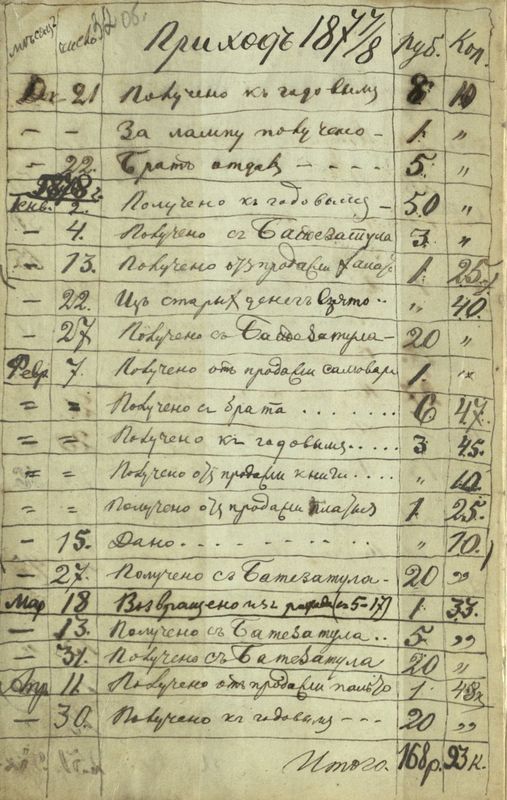 мѣсяцъ число 32 об. Приходъ 1877/8 Руб. Коп.
Дк 21 Получено къ годовымъ 8 10
— — За лампу получено - 1 „
— 22. Братъ отдалъ - - - - 5. „
1878 г.
Янв. 2. Получено къ годовымъ - 50 „
— 4. Получено съ Батезатула 3. „
— 13. Получено отъ продажи 1. 25
— 22. Изъ старыхъ денегъ взято.. „ 40.
— 27 Получено съ Батезатула- 20 „
Февр. 7. Получено отъ продажи самовара 1. „
= = Получено съ брата ........ 6 47.
= = Получено къ годовымъ..... 3 45.
= = Получено отъ продажи книги.... „ 10.
= = Получено отъ продажи платья 1. 25.
— 15. Дано. ........ „ 10.
— 27. Получено съ Батезатула- 20 „
Мар 18 Возвращено изъ (5-17) 1. 33.
— 13. Получено съ Батезатула.. 5 „
— 31. Получено съ Батезатула 20 „
Апр. 11. Получено отъ продажи пальто 1. 48к
— 30. Получено къ годовымъ --- 20 „
Итого. 168 р. 93 к.